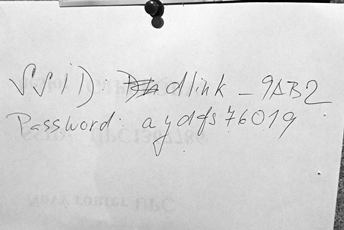 SSiD: dlink - 9AB2
Password: aydqs76019